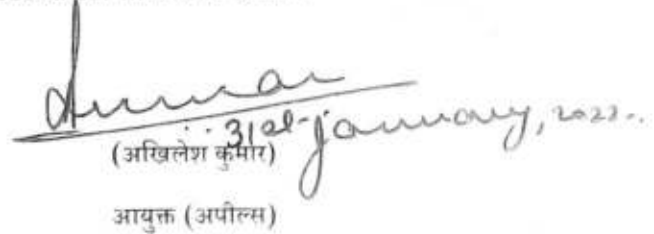 31st January, 2022.
(अखिलेश कुमार)
आयुक्त (अपील्स)